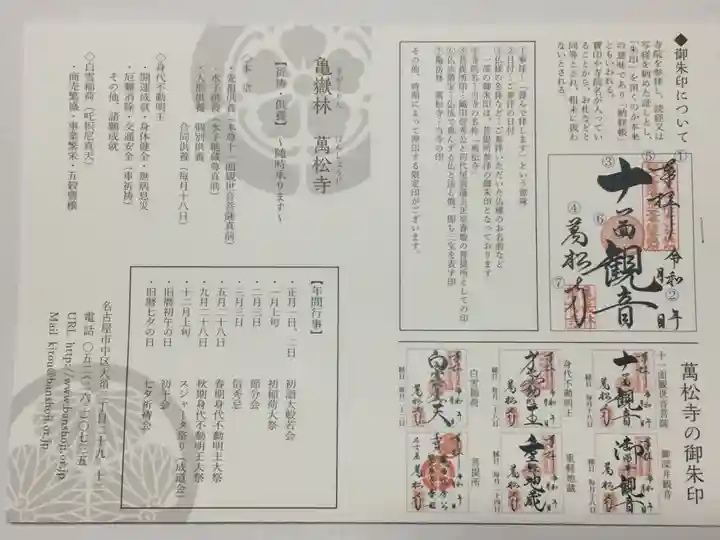 ◆御朱印について
寺院を奉拝し、読経又は
写経を納めた証しとし、
「朱印」を頂くのが本来
の意味であり「納経帳」
ともいわれる。
寶印や寺院名が入ってい
ることから、お札などと
同等とされ、粗末に扱わ
ないとされる。
①
⑤
③
⑥
④
②
⑦
奉拝
十一面観音
萬松寺
令和 年 月 日
①奉拝…「謹んで拝します」という意味
②日付…ご参拝の日付
③仏様の名前など…ご参拝いただいた仏様のお名前など
一部の御朱印は、菩提所参拝の御朱印となっております
④寺院名…当寺の名称「萬松寺」
⑦亀嶽林 萬松寺…当寺の印
その他、時期によって押印する限定印がございます。
萬松寺の御朱印
十一面観世音菩薩
縁日 毎月十八日
御深井観音
縁日 毎月十八日
身代不動明王
重軽地蔵
白雪稲荷
菩提所
亀嶽林 萬松寺
きがくりん ばんしょうじ
【祈祷・供養】 ～随時承ります～
◇本堂
・先祖供養(本尊十一面観世音菩薩真前)
・水子供養(水子地蔵尊真前)
・人形供養 個別供養
合同供養(毎月十八日)
◇身代不動明王
・開運成就・身体健全・無病息災
・厄難消除・交通安全(車祈祷)
その他、諸願成就
◇白雪稲荷(吒枳尼真天)
・商売繁盛・事業繁栄・五穀豊穣
【年間行事】
・正月一日、二日 初詣大般若会
・一月上旬 初稲荷大祭
・二月三日 節分会
・三月三日 信秀忌
・五月二十八日 春期身代不動明王大祭
・九月二十八日 秋期身代不動明王大祭
・十二月上旬 スジャータ祭り(成道会)
・旧暦初午の日 初午会
・旧暦七夕の日 七夕祈祷会
名古屋市中区大須三丁目二十九-十二
電話 〇五二-二六二-〇七三五
URL http://www.banshoji.or.jp
Mail kitou@banshoji.or.jp